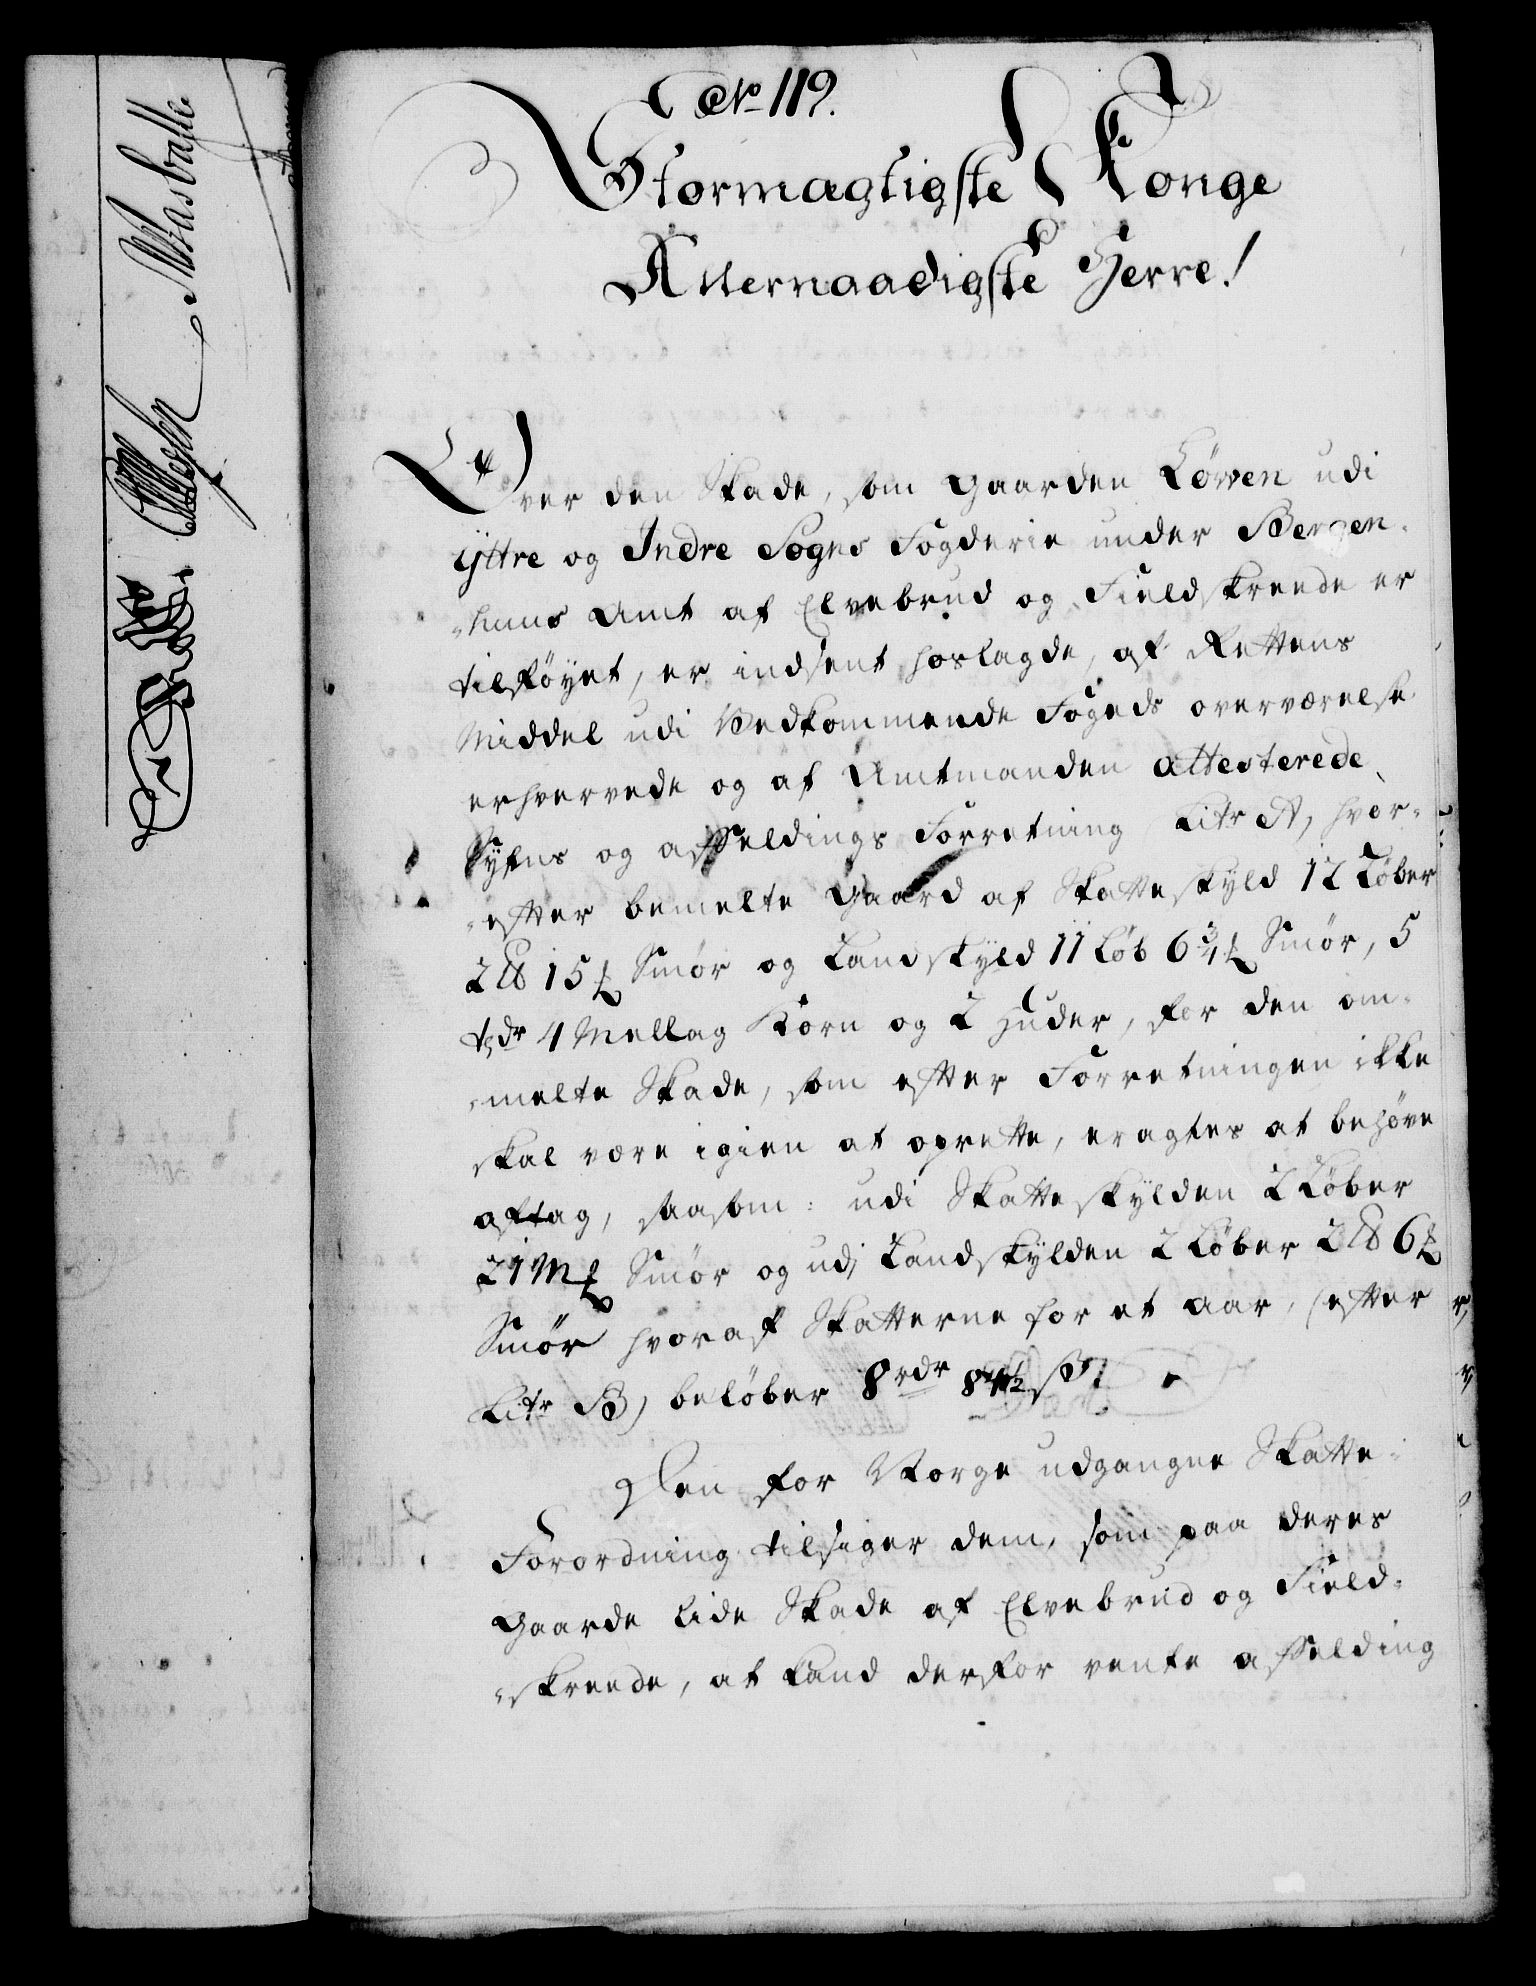 No 119.
Stormægtigste Konge
Allernaadigste Herre!
Over den Skade, som Gaarden Löwen udi
Yttre og Indre Sogns Fogderie under Bergen-
huus Amt af Elvebrud og Fieldskreede er
tilföyet, er indsent hoslagde, af Rettens
Middel udi Vedkommende Fogeds overværelse
erhvervede og af Amtmanden attesterede
Syfns og affældings Forretning Litr A, hvor-
efter bemelte Gaard af Skatteskyld 12 Löber
2 15 Smör og Landskyld 11 Löb 6 3/4 Smör, 5
tdr 4 Mellag Korn og 2 Huder, for den om-
melte Skade, som efter Forretningen ikke
skal være igien at oprette, eragtes at behöve
aftag, saasom: udi Skatteskylden 2 Löber
21 M Smör og udj Landskylden 2 Löber 2 6
Smör hvoraf Skatterne for et aar, (efter
Litr B) belöber 8 rdr ß
Den for Norge udgangne Skatte-
Forordning tilsiger dem, som paa deres
Gaarde lide Skade af Elvebrud og Field-
skreede, at kand derfor vente affælding